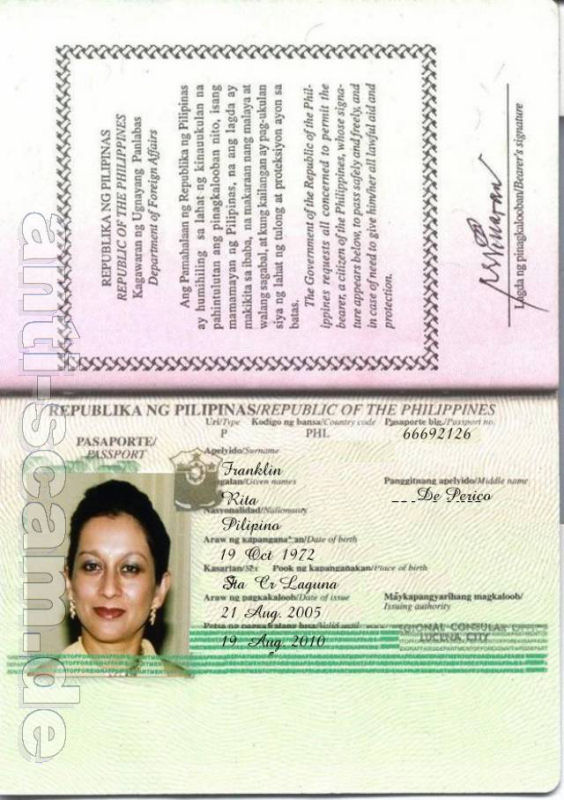 REPUBLIKA NG PILIPINAS
REPUBLIC OF THE PHILIPPINES
Kagawaran ng Ugnayang Panlabas
Department of Foreign Affairs
Ang Pamahalaan ng Republika ng Pilipinas
ay humihiling sa lahat ng kinauukulan na
pahintulutan ang pinagkalooban nito, isang
mamamayan ng Pilipinas, na ang lagda ay
makikita sa ibaba, na makaraan nang malaya at
walang sagabal, at kung kailangan ay pag-ukulan
siya ng lahat ng tulong at proteksiyon ayon sa
batas.
The Government of the Republic of the Phil-
ippines requests all concerned to permit the
bearer, a citizen of the Philippines, whose signa-
ture appears below, to pass safely and freely, and
in case of need to give him/her all lawful aid and
protection.
Lagda ng pinagkalooban/Bearer's signature
anti-scam.de
REPUBLIKA NG PILIPINAS/REPUBLIC OF THE PHILIPPINES
PASAPORTE/
PASSPORT
Uri/Type Kodigo ng bansa/Country code Pasaporte blg./Passport no.
P PHL 66692126
Apelyido/Surname
Franklin
Given names Panggitnang apelyido/Middle name
Rita De Perico
Nasyonalidad/Nationality
Pilipino
Araw ng kapanganakan/Date of birth
19 Oct 1972
Kasarian/Sex Pook ng kapanganakan/Place of birth
Sta Cr Laguna
Araw ng pagkakaloob/Date of issue Maykapangyarihang magkaloob/
Issuing authority
21 Aug. 2005
Valid until
19. Aug. 2010
REGIONAL CONSULAR
LUCENA CITY